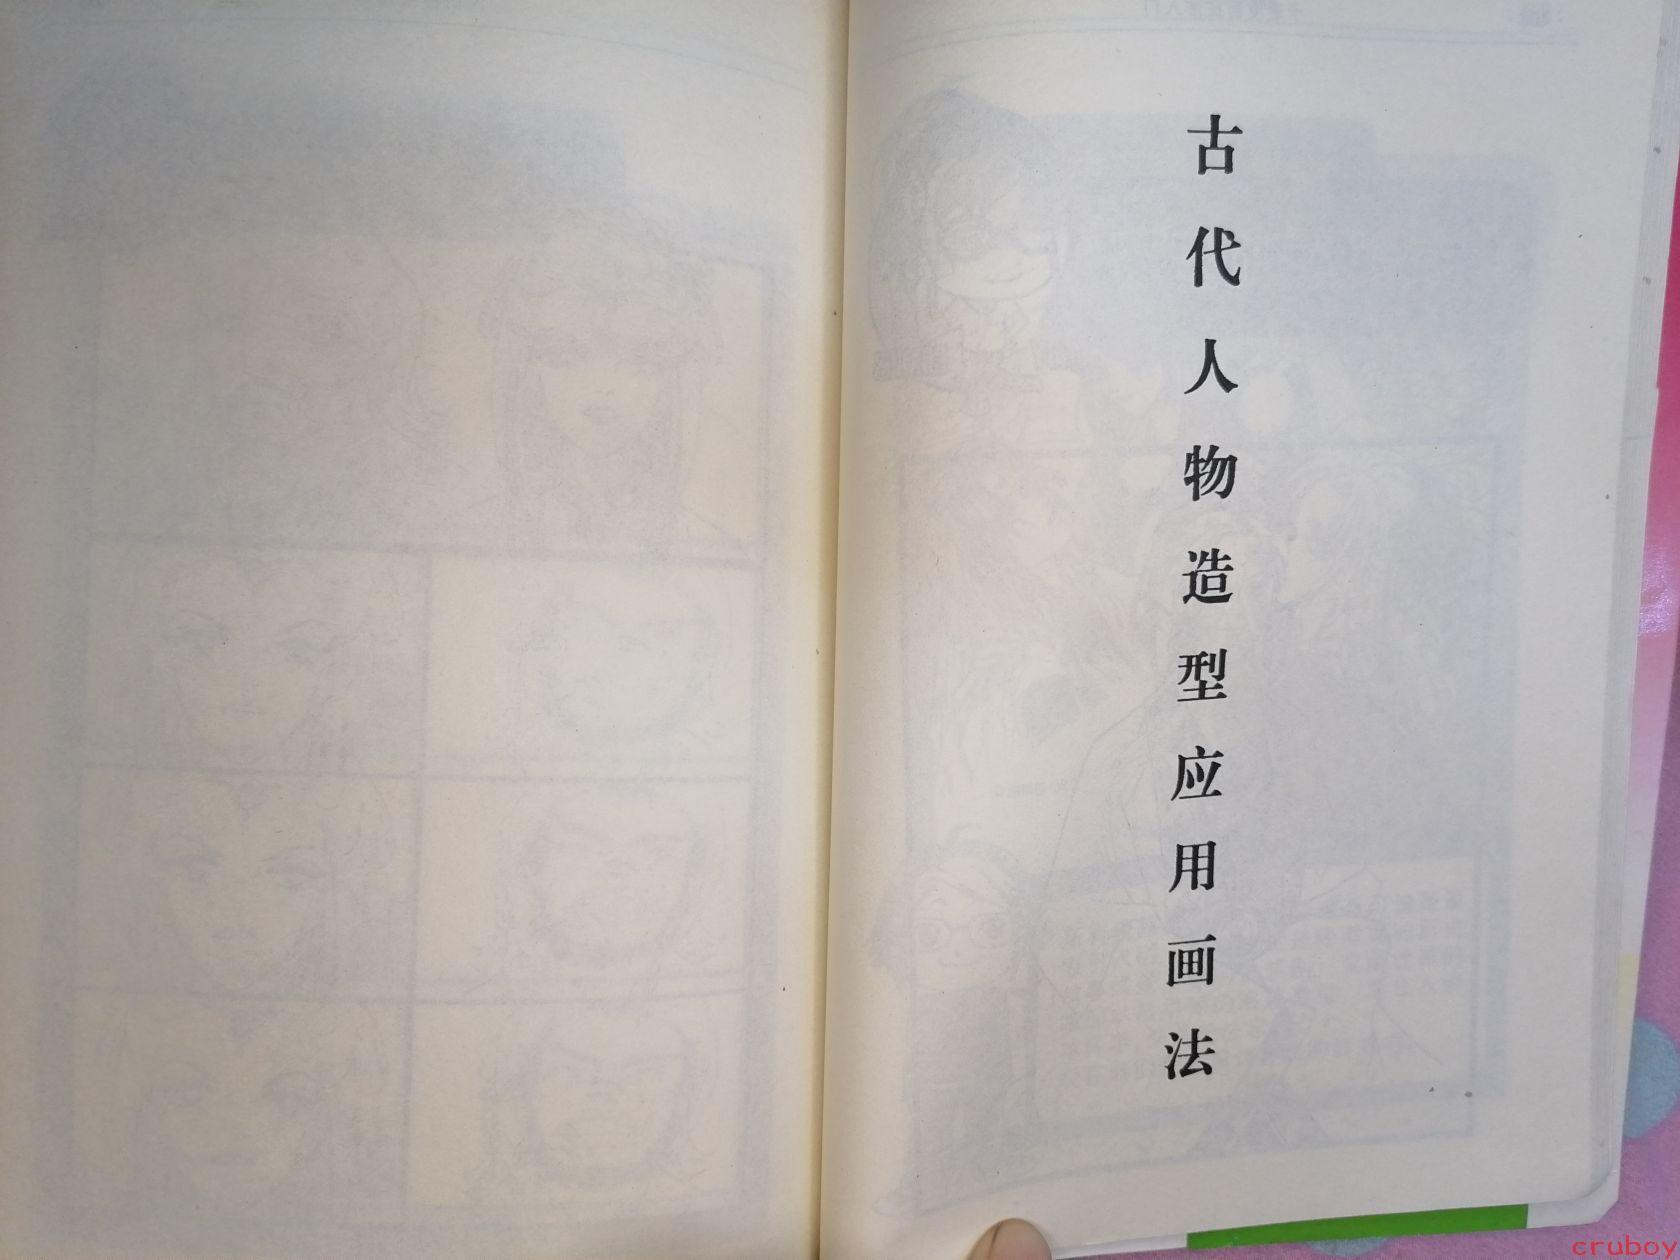 古代人物造型应用画法
cruboy